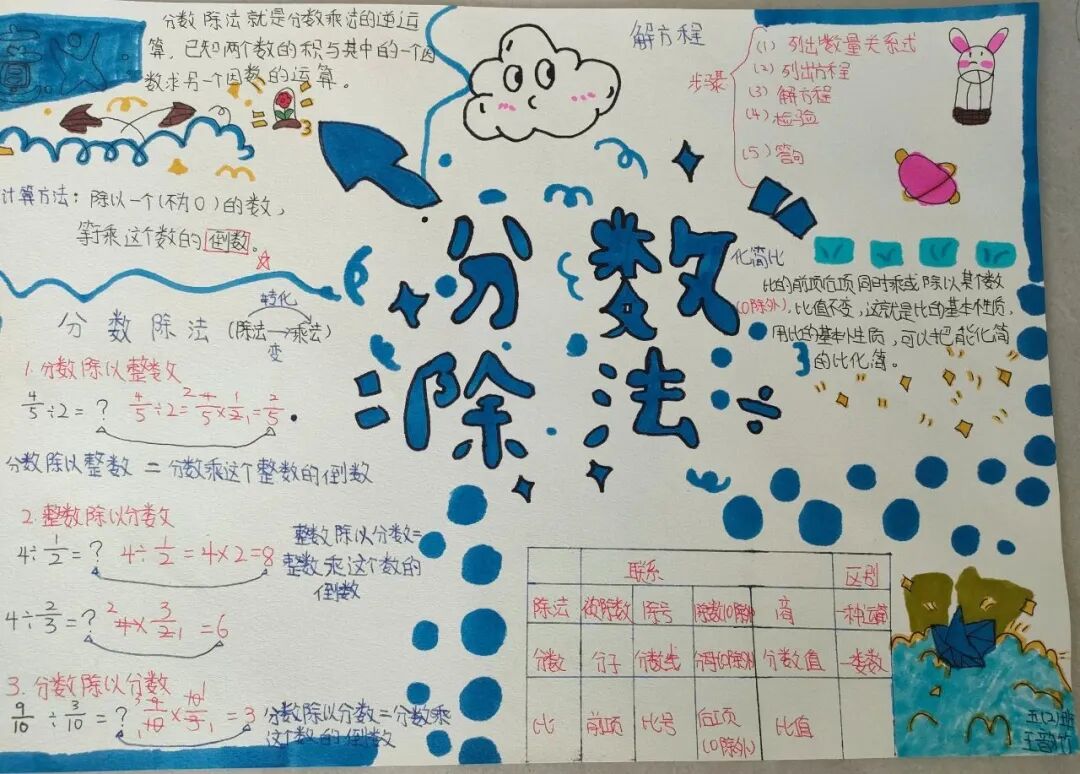 分数除法就是分数乘法的逆运
算,已知两个数的积与其中的一个因
数求另一个因数的运算。
计算方法:除以一个(不为0)的数,
等于乘这个数的倒数。
分数除法(除法→乘法)
转化
变
1.分数除以整数
4/5÷2=? 4/5÷2=4/5×1/2=2/5
2 1
分数除以整数=分数乘这个整数的倒数
2.整数除以分数
4÷1/2=? 4÷1/2=4×2=8
整数除以分数=
整数乘这个数的
倒数
4÷2/3=? 4×3/2=6
2 1
3.分数除以分数
9/10÷3/10=? 9/10×10/3=3
3 1 1 1
分数除以分数=分数乘
这个数的倒数
分数
除法
÷
解方程
步骤
(1)列出数量关系式
(2)列出方程
(3)解方程
(4)检验
(5)答句
化简比
比的前项后项同时乘或除以某个数
(0除外),比值不变,这就是比的基本性质,
用比的基本性质,可以把能化简
的比化简。
联系 区别
除法 被除数 除号 除数(0除外) 商 一种运算
分数 分子 分数线 分母(0除外) 分数值 一类数
比 前项 比号 后项(0除外) 比值
五(2)班
王韵竹